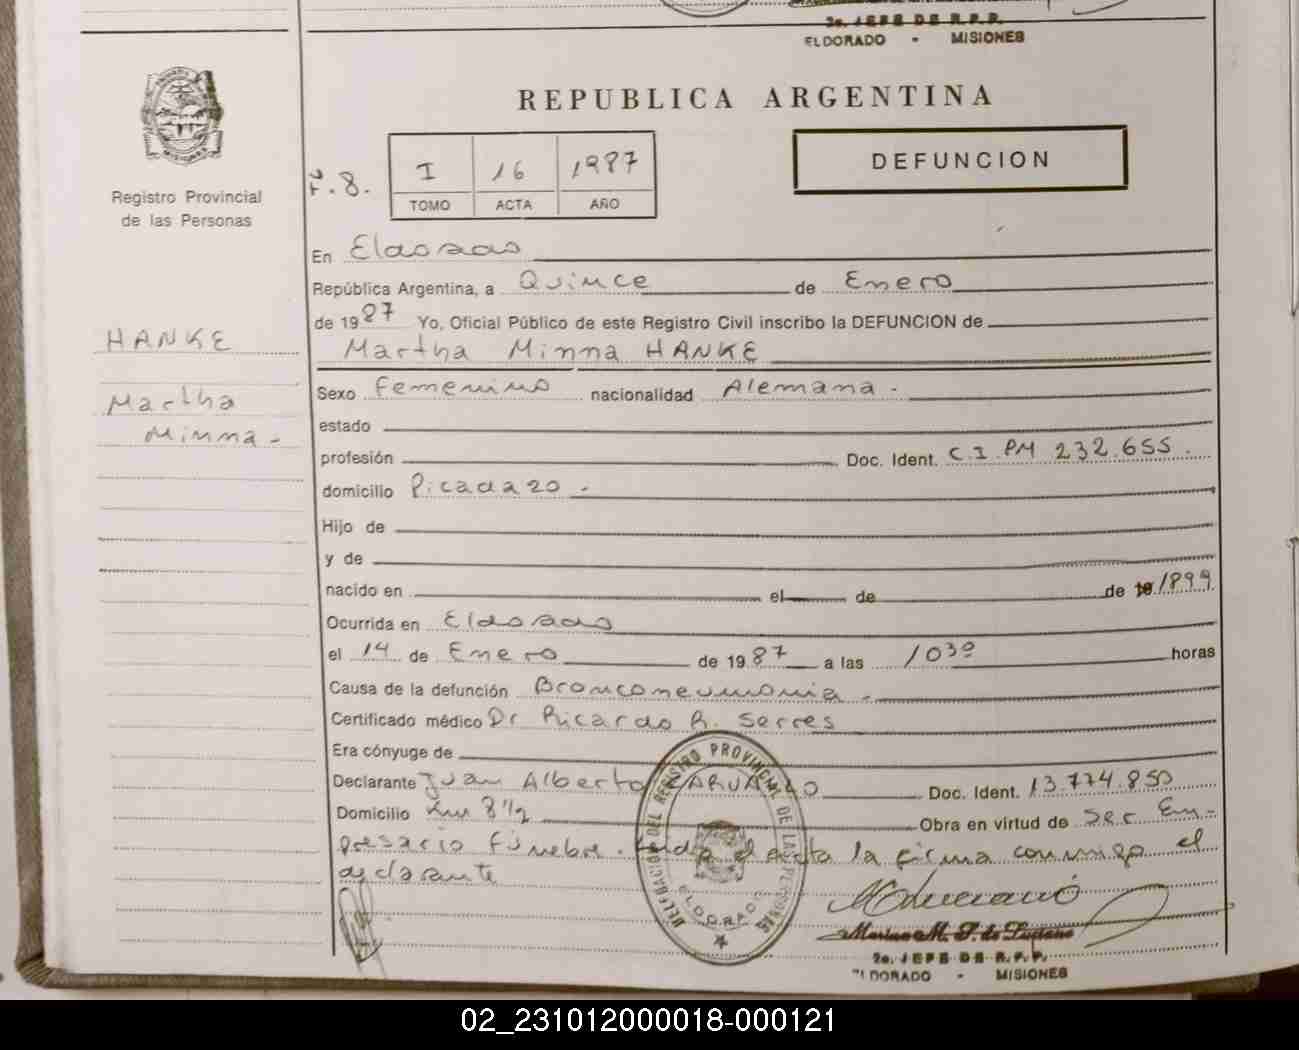 2o. JEFE DE R.P.P.
ELDORADO - MISIONES
MISIONES
Registro Provincial
de las Personas
REPUBLICA ARGENTINA
Fº. 8.
I 16 1987
TOMO ACTA AÑO
DEFUNCION
En Eldorado
República Argentina, a Quince de Enero
de 1987 Yo, Oficial Público de este Registro Civil inscribo la DEFUNCION de
HANKE
Martha Minna HANKE
Martha
Minna -
Sexo Femenino nacionalidad Alemana -
estado
profesión Doc. Ident. C.I. PM 232.655.
domicilio Picada 20 -
Hijo de
y de
nacido en el de de 19 1899
Ocurrida en Eldorado
el 14 de Enero de 1987 a las 1030 horas
Causa de la defunción Bronconeumonia -
Certificado médico Dr Ricardo R. Serres
Era cónyuge de
Declarante Juan Alberto Doc. Ident. 13.774.850
Domicilio Km 8 1/2 Obra en virtud de Ser Em-
presario Fúnebre. el acta la firma conmigo el
declarante
DELEGACION DEL REGISTRO PROVINCIAL DE LAS PERSONAS
ELDORADO
2o. JEFE DE R.P.P.
ELDORADO - MISIONES
02_231012000018-000121